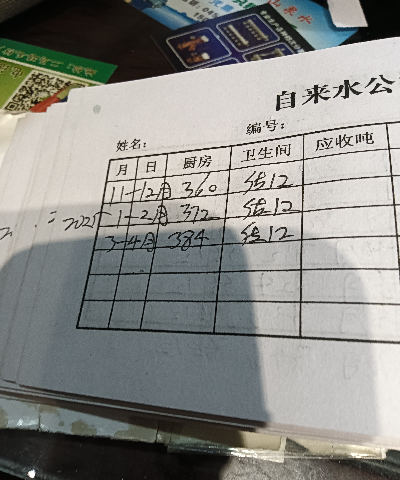 自来水公
姓名： 编号：
月 日 厨房 卫生间 应收吨
11-12月 360 结12
2025 1-2月 372 结12
3-4月 384 结12